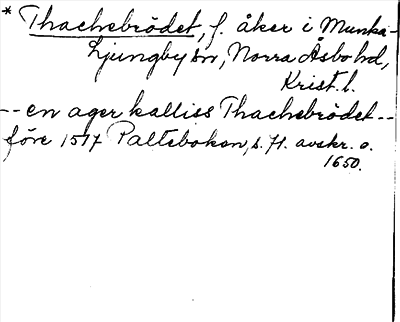 * Thachebrödet, f. åker i Munka-
Ljungby sn, Norra Åsbo hd,
Krist. l.
-- en ager kalliss Thachebrödet --
före 1517 Paltebokan, s. 71. avskr. o.
1650.